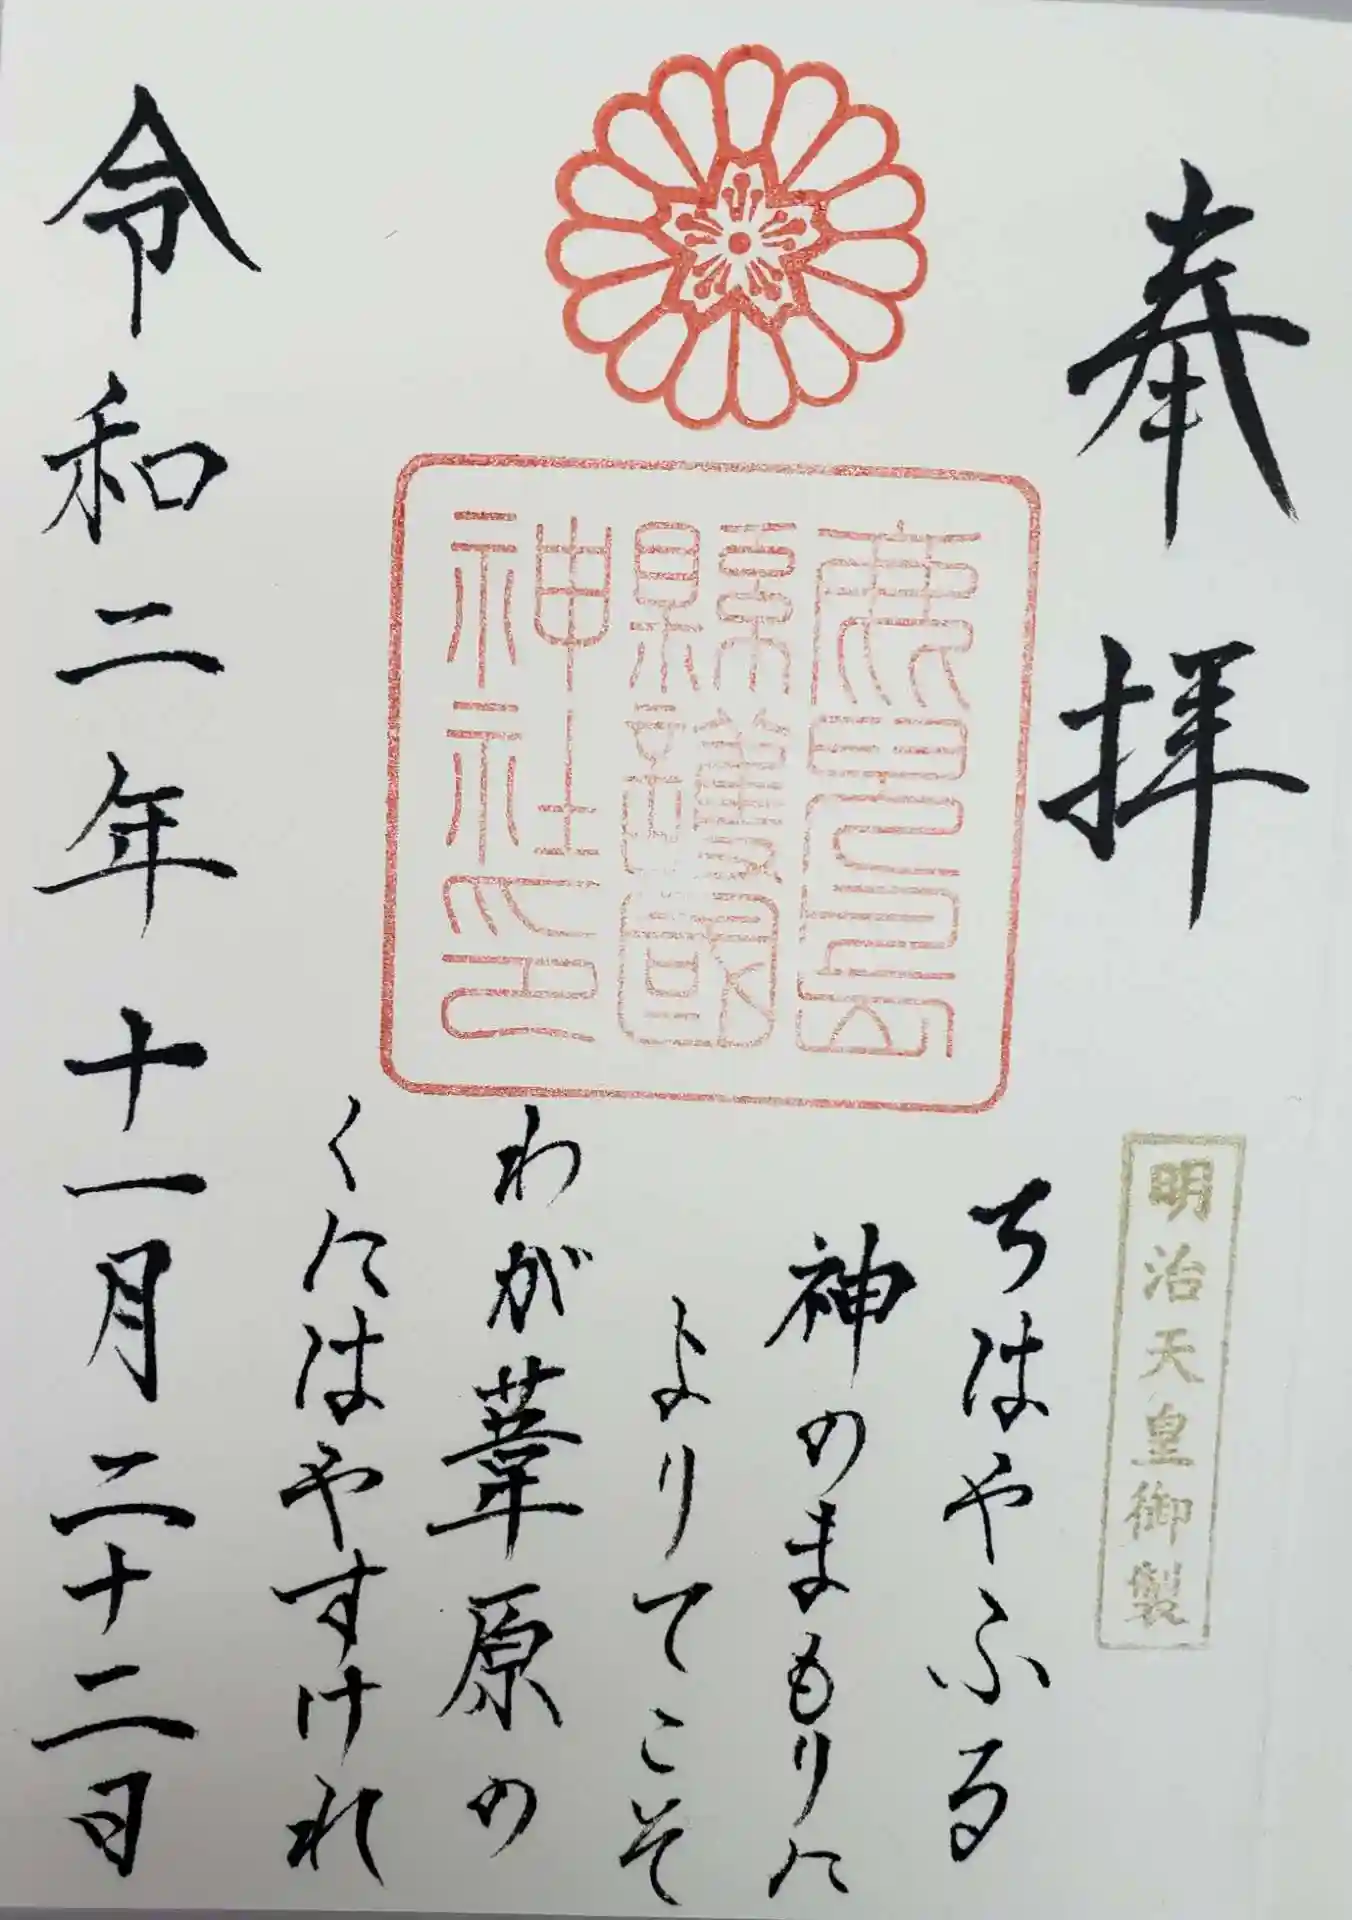 奉拝
鹿児島
縣護國
神社之印
明治天皇御製
ちはやふる
神のまもりに
よりてこそ
わが葦原の
くにはやすけれ
令和二年十一月二十二日